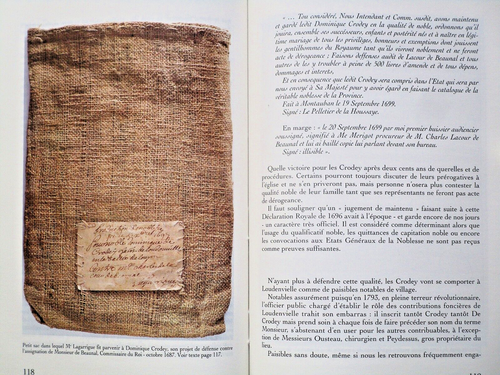 Petit sac dans lequel Me Lagarrigue fit parvenir à Dominique Crodey, son projet de défense contre
l'assignation de Monsieur de Beaunal, Commissaire du Roi - octobre 1687. Voir texte page 117.
118
« ... Tou considéré, Nous Intendant et Comm. susdit, avons maintenu
et gardé ledit Dominique Crodey en la qualité de noble, ordonnons qu'il
jouira, ensemble ses successeurs, enfants et postérité nés et à naître en légi-
time mariage de tous les privilèges, honneurs et exemptions dont jouissent
les gentilhommes du Royaume tant qu'ils vivront noblement et ne feront
acte de dérogeance ; Fassons deffenses audit de Lacour de Beaunal et tous
autres de les y troubler à peine de 500 livres d'amende et de tous dépens,
dommages et interets.
Et en consequence que ledit Crodey sera compris dans l'Etat qui sera par
nous envoyé à Sa Majesté pour y avoir égard en faisant le catalogue de la
véritable noblesse de la Province.
Fait à Montauban le 19 Septembre 1699.
Signé : Le Pelletier de la Houssaye.
En marge : « le 20 Septembre 1699 par moi premier huissier audiencier
soussigné, signifié à Me Merigot procureur de M. Charles Lacour de
Beaunal et lui ai baillé copie lui parlant devant son bureau.
Signé : illisible ».
Quelle victoire pour les Crodey après deux cents ans de querelles et de
procédures. Certains pourront toujours discuter de leurs prérogatives à
l'église et ne s'en priveront pas, mais personne n'osera plus contester la
qualité noble de leur famille tant que ses représentants ne feront pas acte
de dérogeance.
Il faut souligner qu'un « jugement de maintenu » faisant suite à cette
Déclaration Royale de 1696 avait à l'époque - et garde encore de nos jours
- un caractère très officiel. Il est considéré comme déterminant alors que
l'usage du qualificatif noble, les quittances de capitation noble ou encore
les convocations aux Etats Généraux de la Noblesse ne sont pas reçus
comme preuves suffisantes.
N'ayant plus à défendre cette qualité, les Crodey vont se comporter à
Loudenvielle comme de paisibles notables de village.
Notables assurément puisqu'en 1793, en pleine terreur révolutionnaire,
l'officier public chargé d'établir le rôle des contributions foncières de
Loudenvielle trahit son embarras : il inscrit tantôt Crodey tantôt De
Crodey mais prend soin à chaque fois de faire précéder son nom du terme
Monsieur, s'abstenant de donner ce titre à tous les autres habitants, à l'ex-
ception de Messieurs Ousteau, chirurgien et Peydessus, gros propriétaire
du lieu.
Paisibles sans doute, même si nous les retrouvons fréquemment enga-